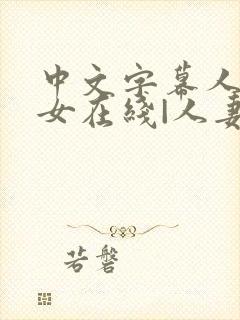 中文字幕人
女在线|人妻
若磐